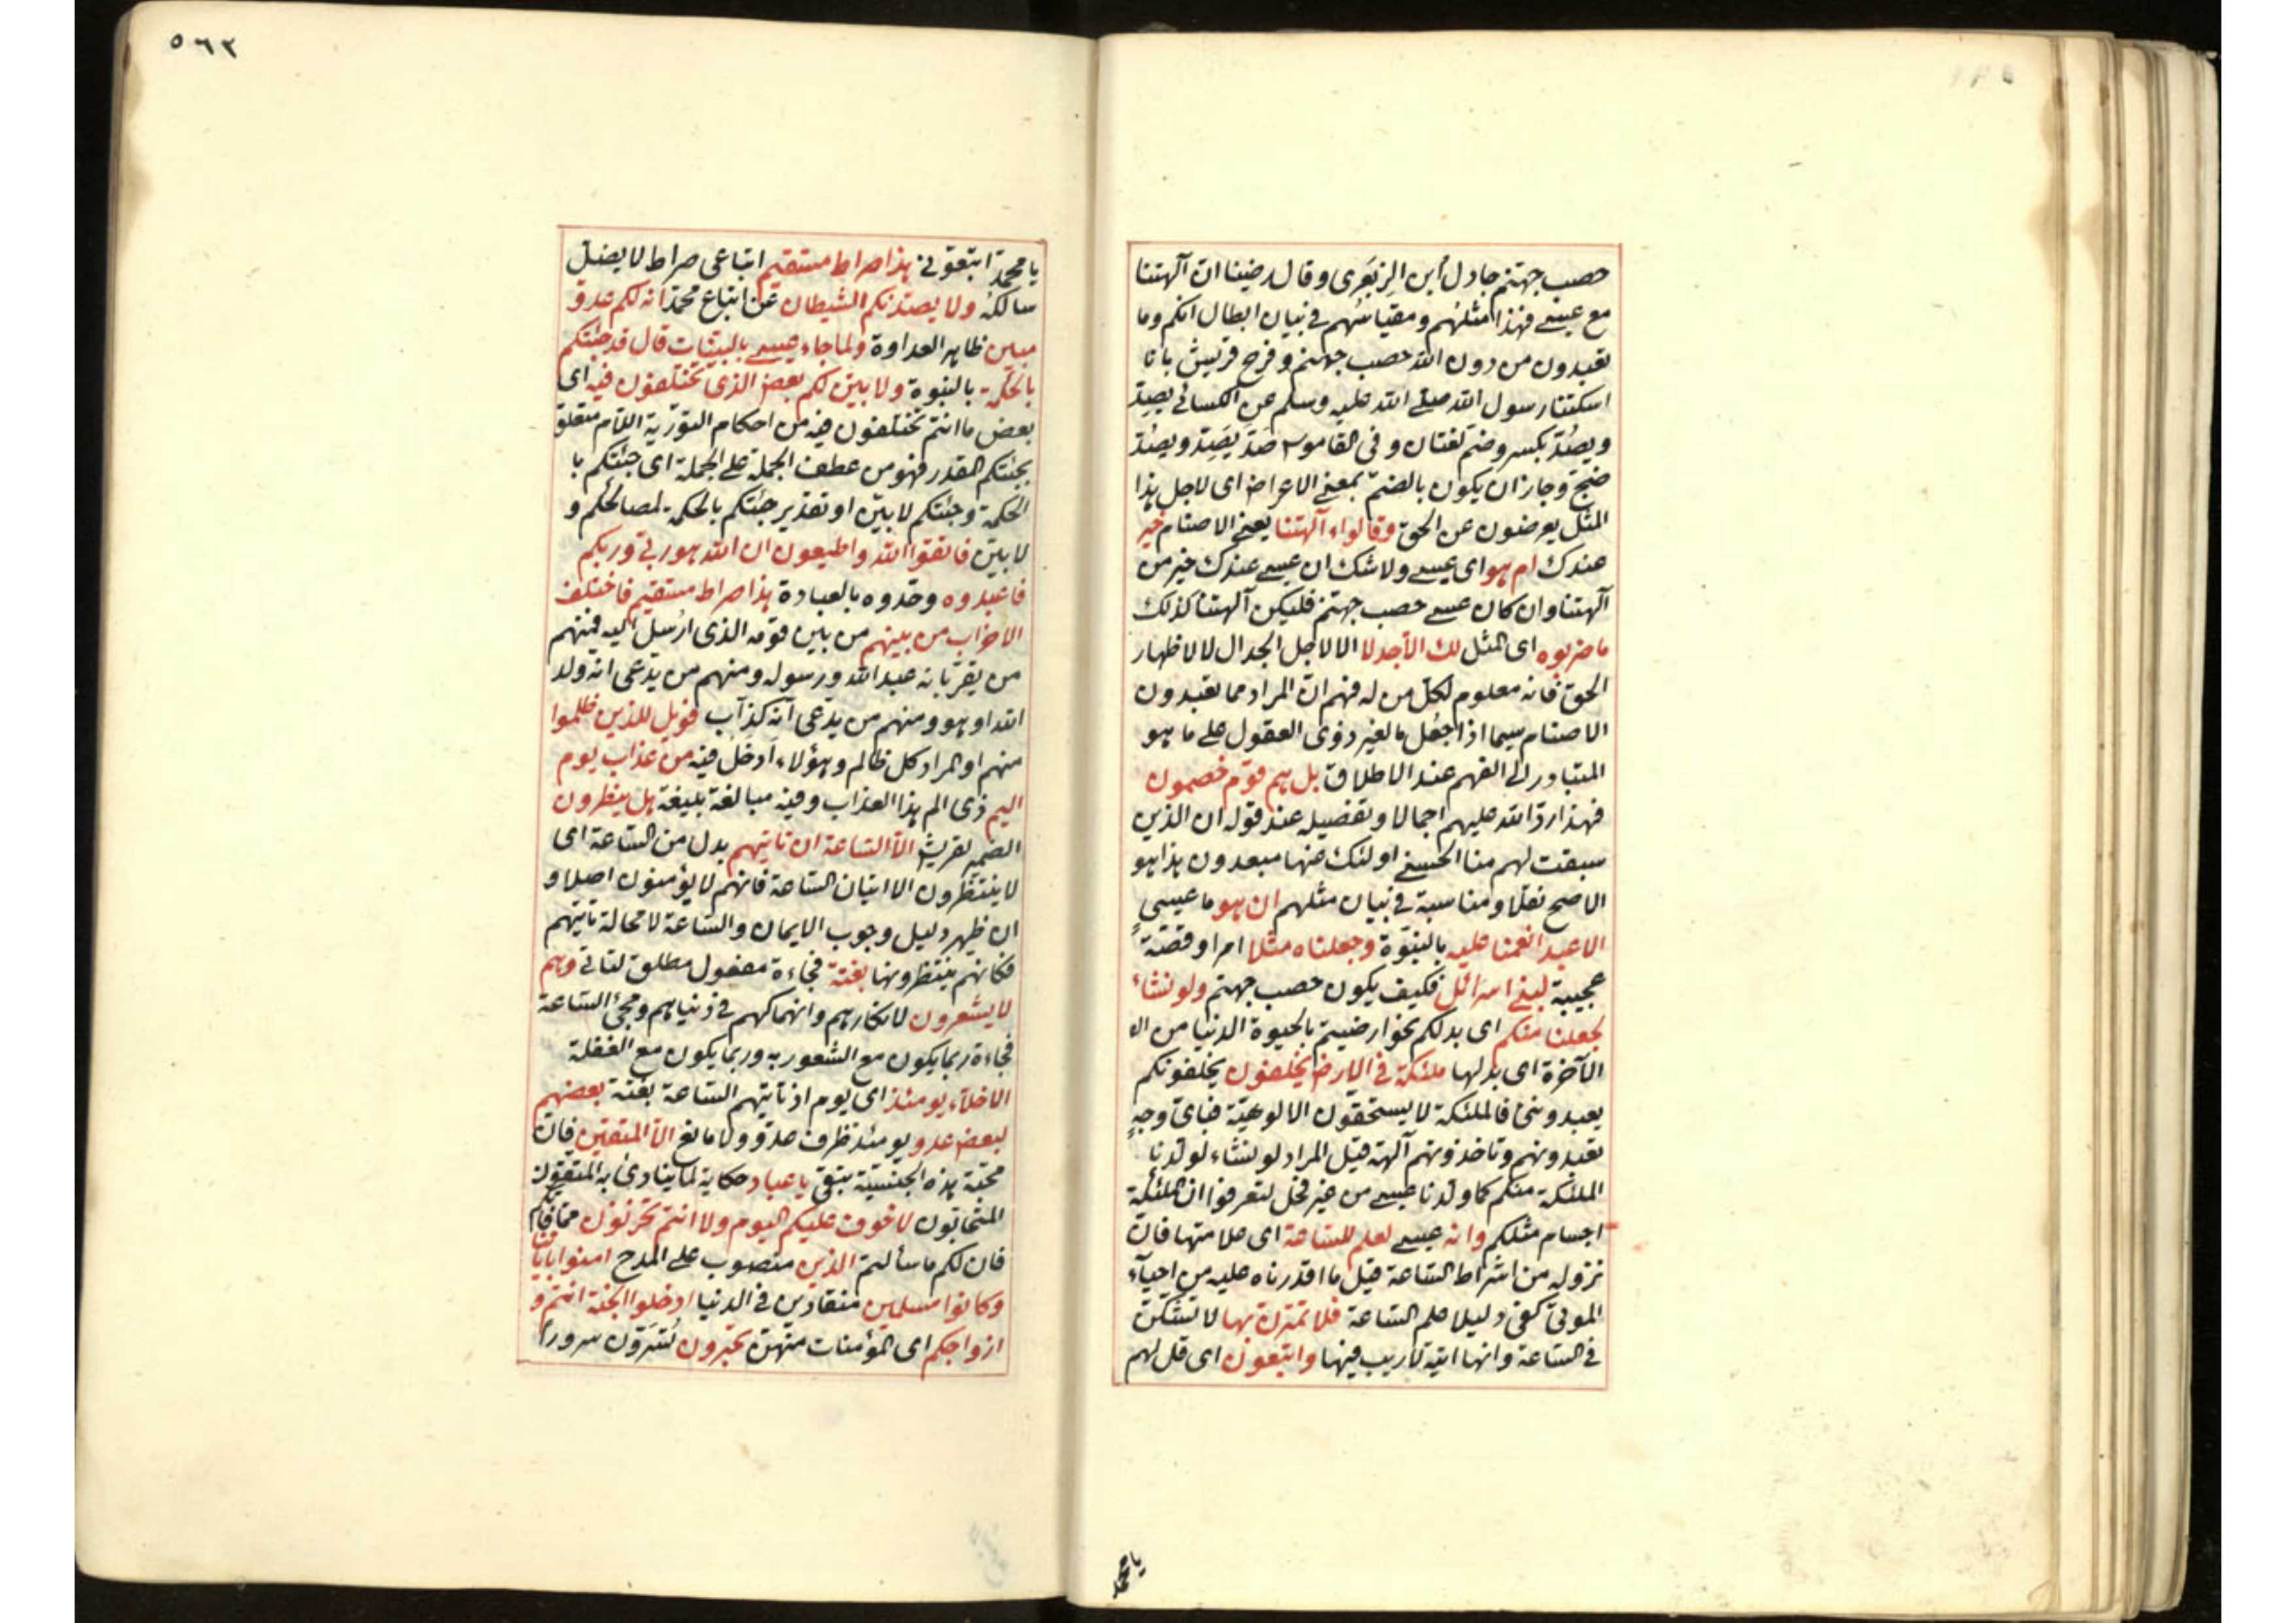 حصب جهنم جادل ابن الزبعرى وقال رضينا ان آلهتنا
مع عيسى فهذا مثلهم ومقياسهم فى بيان ابطال انكم وما
تعبدون من دون الله حصب جهنم وفرح قريش بانا
اسكتنا رسول الله صلى الله عليه وسلم عن الكسائى يصد
ويصد بكسر وضم لغتان وفى القاموس صد يصد ويصد
ضج وجاز ان يكون بالضم بمعنى الاعراض اى لاجل هذا
المثل يعرضون عن الحق وقالواء آلهتنا يعنى الاصنام خير
عندك ام هو اى عيسى ولا شك ان عيسى عندك خير من
آلهتنا وان كان عيسى حصب جهنم فليكن آلهتنا كذلك
ما ضربوه اى المثل لك الا جدلا الا لاجل الجدال لا لاظهار
الحق فانه معلوم لكل من له فهم ان المراد مما تعبدون
الاصنام سيما اذا جعل ما لغير ذوى العقول على ما هو
المتبادر الى الفهم عند الاطلاق بل هم قوم خصمون
فهذا رد الله عليهم اجمالا وتفصيله عند قوله ان الذين
سبقت لهم منا الحسنى اولئك عنها مبعدون هذا هو
الاصح نقلا ومناسبة فى بيان مثلهم ان هو ما عيسى
الا عبد انعمنا عليه بالنبوة وجعلناه مثلا امرا وقصة
عجيبة لبنى اسرائل فكيف يكون حصب جهنم ولو نشاء
لجعلنا منكم اى بدلكم نحو ارضيتم بالحيوة الدنيا من الا
الآخرة اى بدلها ملئكة فى الارض يخلفون يخلفونكم
يعبدوننى فالملئكة لا يستحقون الالوهية فباى وجه
تعبدونهم وتاخذونهم آلهة قيل المراد لو نشاء لولدنا
الملئكة منكم كما ولدنا عيسى من غير فحل لتعرفوا ان الملئكة
اجسام مثلكم وانه عيسى لعلم للساعة اى علامتها فان
نزوله من اشراط الساعة قيل ما اقدرناه عليه من احياء
الموتى كفى دليلا علم الساعة فلا تمترن بها لا تشكن
فى الساعة وانها اتية لا ريب فيها واتبعون اى قل لهم
يا محمد
٥٦٣
يا محمد اتبعونى هذا صراط مستقيم اتباعى صراط لا يضل
سالكه ولا يصدنكم الشيطان عن اتباع محمد انه لكم عدو
مبين ظاهر العداوة ولما جاء عيسى بالبينات قال قد جئتكم
بالحكمة بالنبوة ولابين لكم بعض الذى تختلفون فيه اى
بعض ما انتم تختلفون فيه من احكام التورية اللام متعلق
بجئتكم المقدر فهو من عطف الجملة على الجملة اى جئتكم با
الحكمة وجئتكم لابين او تقدير جئتكم بالحكمة لمصالحكم و
لابين فاتقوا الله واطيعون ان الله هو ربى وربكم
فاعبدوه وحدوه بالعبادة هذا صراط مستقيم فاختلف
الاحزاب من بينهم من بين قومه الذى ارسل اليه فمنهم
من يقر بانه عبد الله ورسوله ومنهم من يدعى انه ولد
الله او هو ومنهم من يدعى انه كذاب فويل للذين ظلموا
منهم او المراد كل ظالم وهؤلاء ادخل فيه من عذاب يوم
اليم ذى الم هذا العذاب وفيه مبالغة بليغة هل ينظرون
الضمير لقريش الا الساعة ان تاتيهم بدل من الساعة اى
لا ينتظرون الا اتيان الساعة فانهم لا يؤمنون اصلا و
ان ظهر دليل وجوب الايمان والساعة لا محالة تاتيهم
فكانهم ينتظرونها بغتة فجاءة مفعول مطلق لتاتى وهم
لا يشعرون لانكارهم وانهماكهم فى دنياهم ومجئ الساعة
فجاءة ربما يكون مع الشعور به وربما يكون مع الغفلة
الاخلاء يومئذ اى يوم اذ تاتيهم الساعة بغتة بعضهم
لبعض عدو يومئذ ظرف عدو ولا مانع الا المتقين فان
محبة هذه الجنسية تبقى يا عباد حكاية لما ينادى به المتقون
المتحابون لا خوف عليكم اليوم ولا انتم تحزنون مما فاتكم
فان لكم ما سألتم الذين منصوب على المدح امنوا باياتنا
وكانوا مسلمين منقادين فى الدنيا ادخلوا الجنة انتم و
ازواجكم اى المؤمنات منهن تحبرون تسرون سرورا